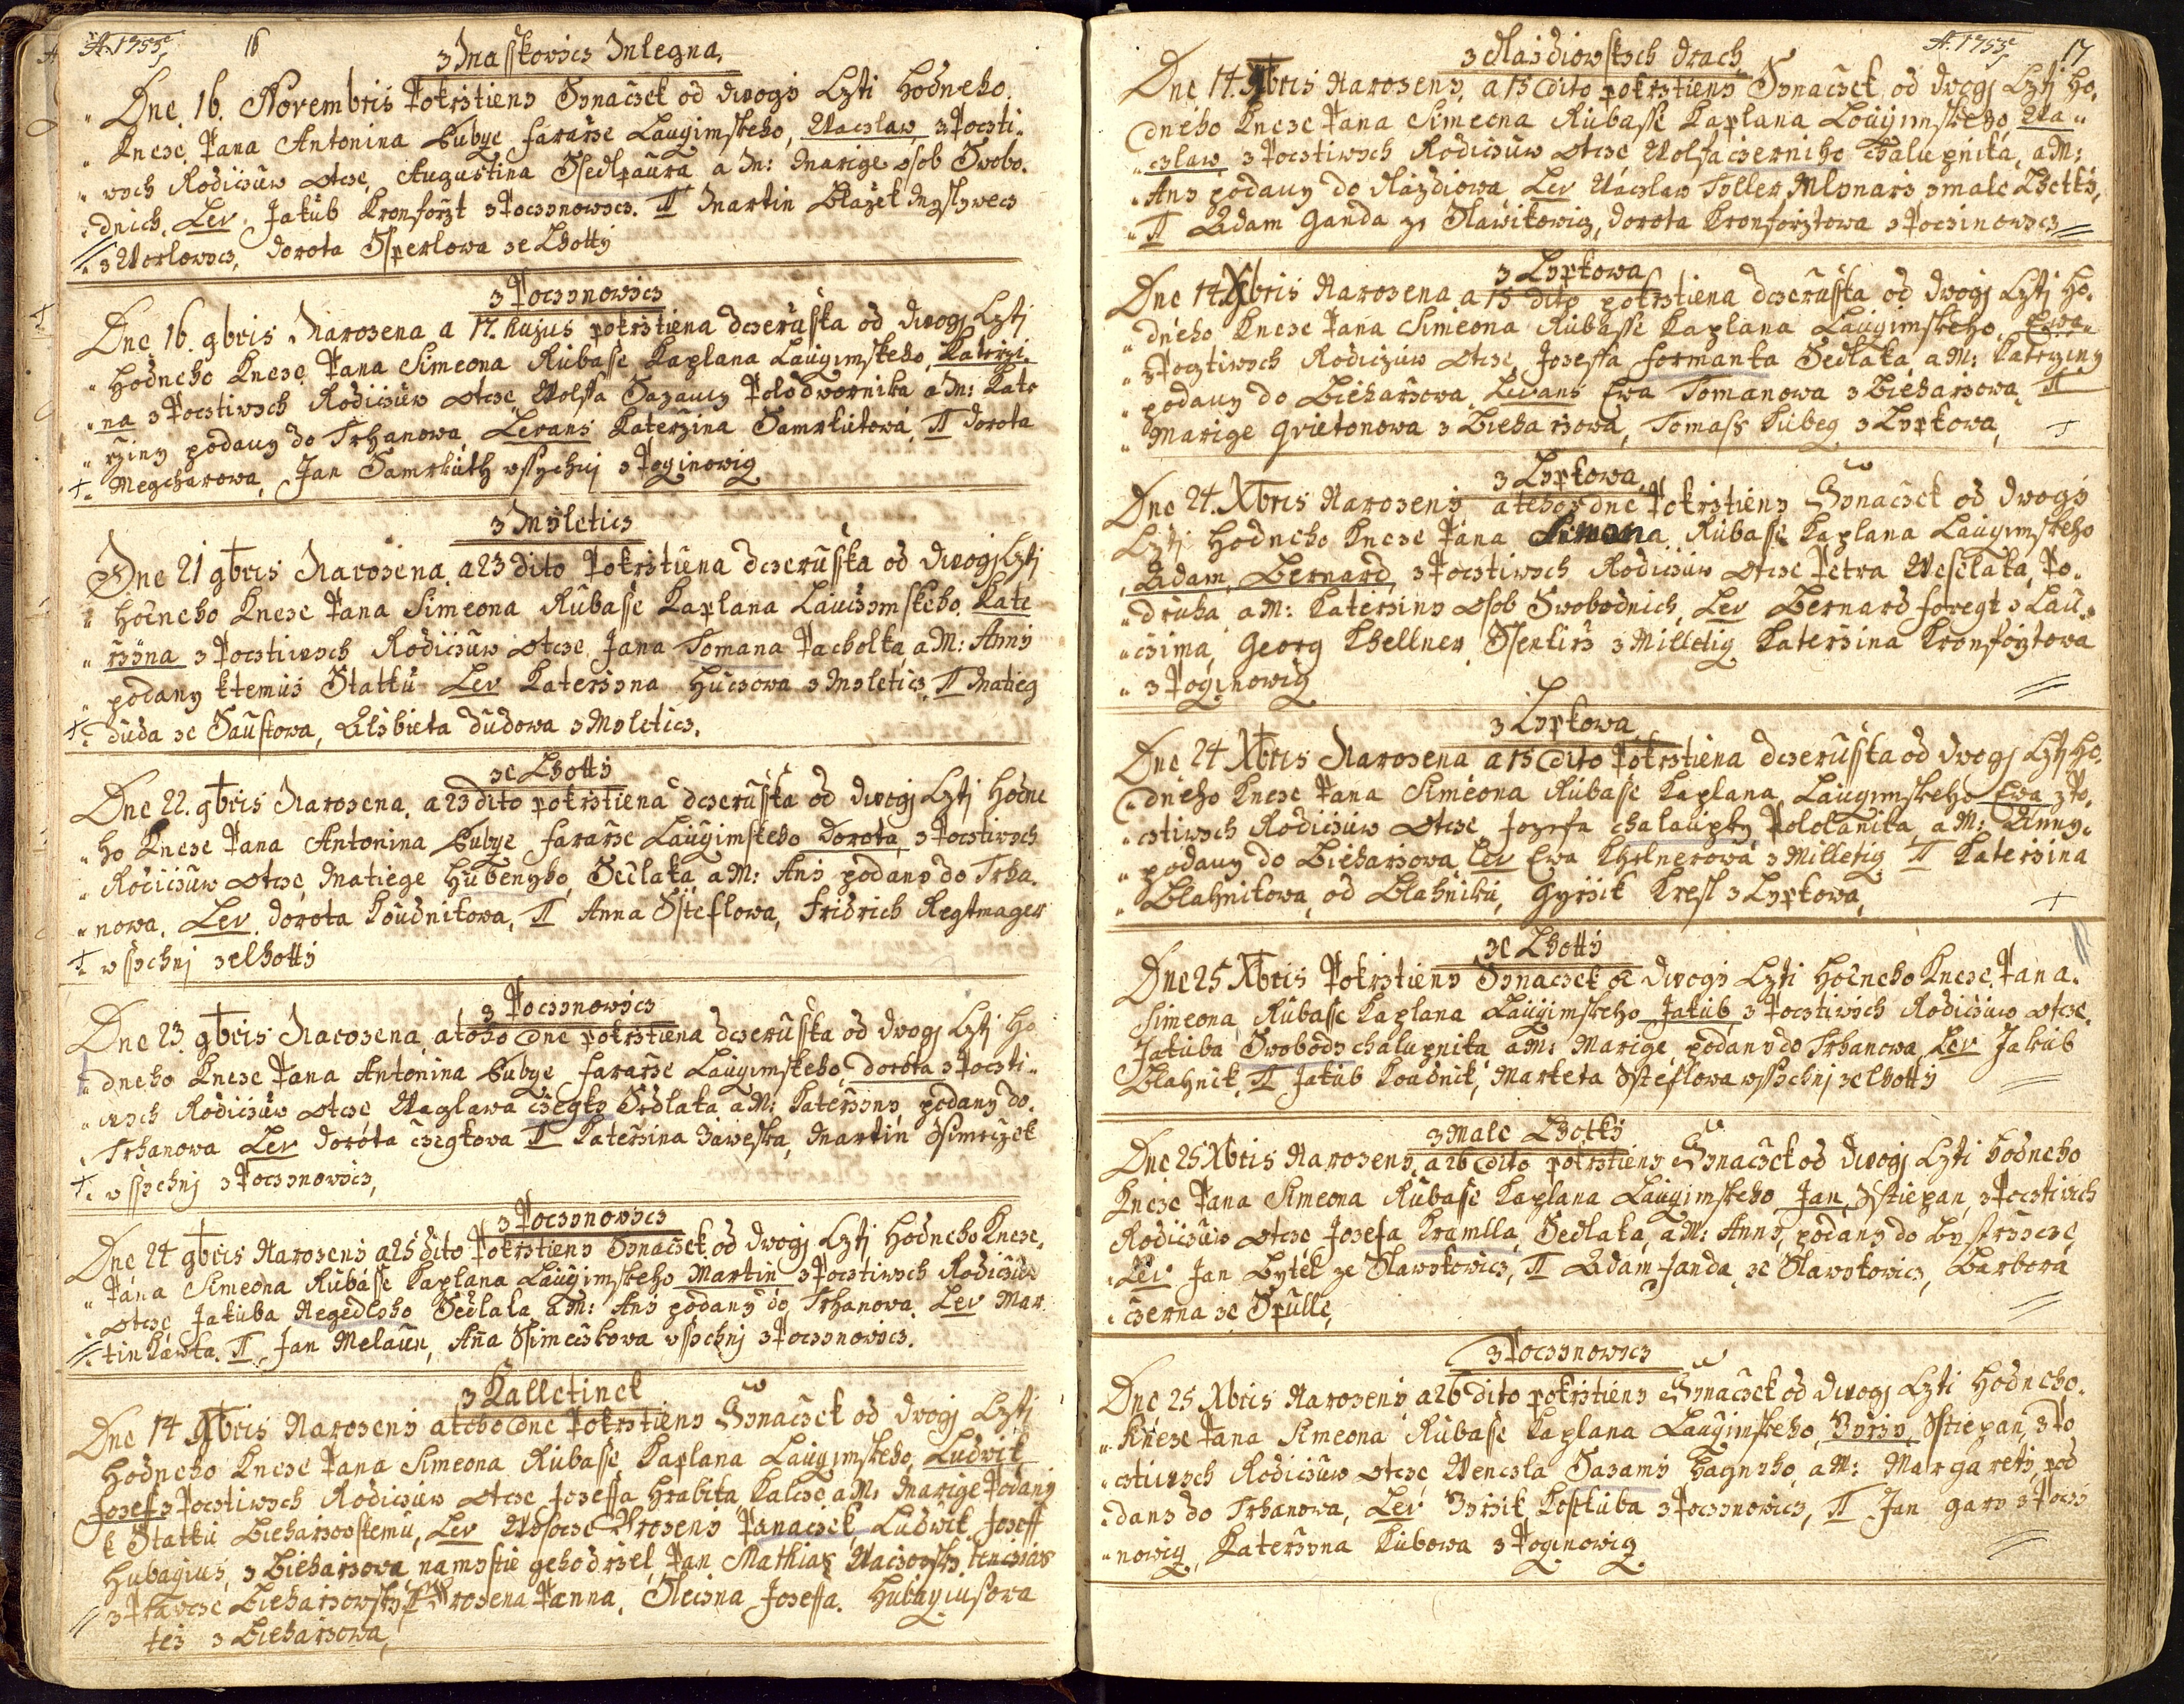 A. 1755 16
z Inasskovicz Inlegna,
Dne. 16. Novembris Pokrztieny Synaczek od dwogy Czti hodneho.
Kneze. Pana Antonina Bubge fararze Laugimskeho, Waczlaw z Poczti-
wych Rodiczuw Otcze, Augustina Ssedlpaura a M: Marige osob Swobo-
dnich, Lev Jakub Kronforzt z Poczynowicz. TT Martin Blažek Myslywecz
z Worlowicz, dorota Ssperlowa ze Lhotty
z Poczynowicz
Dne 16. gbris Narozena a 17. hujus pokrztiena dczeruska od dwogj Czti
Hodneho Kneze Pana Simeona Rubasse Kaplana Laugimskeho, Katerzi-
na z Pocztiwych Rodiczuw otcze, Wolfa Sazaucy Polodwornika a M: Kate
rziny podany do Trhanowa, Levans Katerzina Samrhutowa, TT dorota
Megcharowa, Jan Samrhuth wssychnj z Poginowig
z Myleticz
Dne 21 gbris Narozena, a 23 dito Pokrztiena dczeruska od dwogj Czti
Hodneho Kneze Pana Simeona Rubasse Kaplana Lauczymskeho, Kate
rzyna z Pocztiwych Rodiczuw otcze Jana Tomana Pacholka, a M: Anny
podany ktemus Statku Lev Katerzyna Huczowa z Myleticz, TT Matieg
duda ze Saustowa, Alzbieta dudowa z Myleticz.
ze Lhotty
Dne 22. gbris Narozena. a 23 dito pokrztiena dczeruska od dwogj Czti hodne
ho Kneze Pana Antonina Bubge fararze Laugimskeho dorota, z Pocztiwych
Rodiczuw otcze, Matiege Hubenyho, Sedlaka a M: Any podany do Trha-
nowa. Lev. dorota Koudnikowa, TT Anna Ssteflowa, fridrich Regtmager
wssychnj zelhotty
z Poczynowicz
Dne 23. gbris Narozena, a toho dne pokrztiena dczeruska od dwogj Czti ho
dneho Kneze Pana Antonina Bubge fararze Laugimskeho, dorota z Poczti-
wych Rodiczuw otcze, Waglawa czegky Sedlaka a M: Katerzyny, podany do
Trhanowa Lev dorota Czegkowa TT Katerzina Zaweska, Martin Ssimczek
wssychnj z Poczynowicz,
z Poczynowicz
Dne 24 gbris Narozeny a 25 dito Pokrztieny Synaczek, od dwogj Czti Hodneho Kneze,
Pana Simeona Rubasse Kaplana Laugimskeho Martin z Pocztiwych Rodiczuw
otcze Jakuba Regedlyho Sedlaka a M: Any podany do Trhanowa. Lev Mar
tin Kawka. TT Jan Melaun, Aña Ssimeczkowa wssychnj z Poczynowicz.
z Kalletinek
Dne 14 Xbris Narozeny a teho dne Pokrztieny Synaczek od dwogj Czti
Hodneho Kneze Pana Simeona Rubasse Kaplana Laugimskeho, Ludwik
Josef z Pocztiwych Rodiczuw otcze Joseffa Hrabeta Kalcze, a M: Marige Podany
k Statku Bieharzowskemu, Lev Wysocze Vrozeny Panaczek Ludwik Joseff
Hubagius, z Bieharzowa, namystie geho drzel, Pan Mathias
z Prawcze Bieharzowsky TT Vrozena Panna, Slecžna Joseffa. Hubagiusowa
tez z Bieharzowa,

A. 1755 17
z Nazdiowskych drach
Dne 14. Xbris Narozeny, a 15 dito pokrztieny Synaczek od dwogj Czti ho-
dneho Kneze Pana Simeona Rubasse Kaplana Lougimskeho Wa-
czlaw z Pocztiwych Rodiczuw Otcze Wolfa czerniho Chalupnika, a M:
Any podany do Nazdiowa, Lev Waczlaw Toller, Mlynarz z male Lhotky,
TT Adam Ganda ze Slawikowicz, dorota Kronforztowa z Poczinowicz
z Lypkowa
Dne 14. Xbris Narozena a 15 dito pokrztiena dczeruska od dwogj Czti ho-
dneho Kneze Pana Simeona Rubasse Kaplana Laugimskeho, Ewa
z Pocztiwych Rodiczuw otcze, Joseffa formanka Sedlaka, a M: Katerziny
podany do Bieharzowa, Levans Ewa Tomanowa z Bieharzowa, TT
Marige Qvietonowa z Bieharzowa, Tomass Kubeg z Lypkowa,
z Lypkowa,
Dne 24. Xbris Narozeny a tehoz dne Pokrztieny Synaczek od dwogy
Czti Hodneho Kneze Pana Simona Rubasse Kaplana Laugimskeho
Adam, Bernard, z Pocztiwych Rodiczuw otcze Petra Weselaka, Po-
druha, a M: Katerziny osob Swobodnich, Lev Bernard foregt z Lau-
czima, Georg Khellner, Ssenkirz z Milletig Katerzina Kronforztowa
z Poginowig
z Lypkowa,
Dne 24 Xbris Narozena a 15 dito Pokrztiena dczeruska od dwogj Czti ho-
dneho Kneze Pana Simeona Rubasse Kaplana Laugimskeho Ewa z Po-
cztiwych Rodiczuw otcze Jozefa chalaupky, Pololanika, a M: Anny
podany do Bieharzowa Lev Ewa Khelnerowa z Milletig TT Katerzina
Blahnikowa, od Blahniku, Gyrzik Kresl z Lypkowa,
ze Lhotty
Dne 25 Xbris Pokrztieny Synaczek od dwogy Czti hodneho Kneze Pana
Simeona Rubasse Kaplana Laugimskeho Jakub, z Pocztiwych Rodiczuw otcze,
Jakuba Swobody chalupnika a M: Marige podany do Trhanowa Lev Jakub
Blahnik, TT Jakub Koudnik, Marketa Ssteflowa wssychnj zelhotty
z Male Lhotky
Dne 25 Xbris Narozeny, a 26 dito pokrztieny Synaczek od dwogj Czti hodneho
Kneze Pana Simeona Rubasse Kaplana Laugimskeho Jan, Sstiepan, z Pocztiwich
Rodiczuw otcze, Josefa Kramlla, Sedlaka, a M: Anny, podany do Bystrzicze,
Lev Jan Bytek ze Slawikowicz, TT Adam Janda, ze Slawikowicz, Barbora
czerna ze Spulle,
z Poczynowicz
Dne 25 Xbris Narozeny a 26 dito pokrztieny Synaczek od dwogj Czti Hodneho
Kneze Pana Simeona Rubasse Kaplana Laugimskeho, Yrzy, Sstiepan, z Po
cztiwych Rodiczuw otcze, Wenczla Sazamy Hagneho, a M: Margarety, pod
dany do Trhanowa, Lev Yrzik Koskuba z Poczynowicz, TT Jan gary z Poczy
nowig, Katerzyna Kubowa z Poginowig